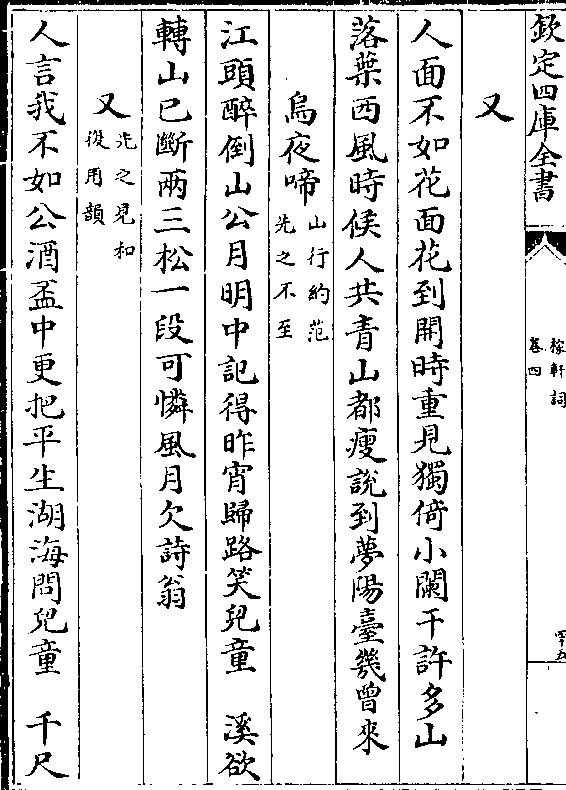 欽定四庫全書
稼軒詞
卷四
四十五
又
人面不如花面花到開時重見獨倚小闌干許多山
落葉西風時候人共青山都瘦說到夢陽臺幾曾來
烏夜啼
山行約范
先之不至
江頭醉倒山公月明中記得昨宵歸路笑兒童 溪欲
轉山已斷兩三松一段可憐風月欠詩翁
又
先之見和
復用韻
人言我不如公酒盃中更把平生湖海問兒童 千尺